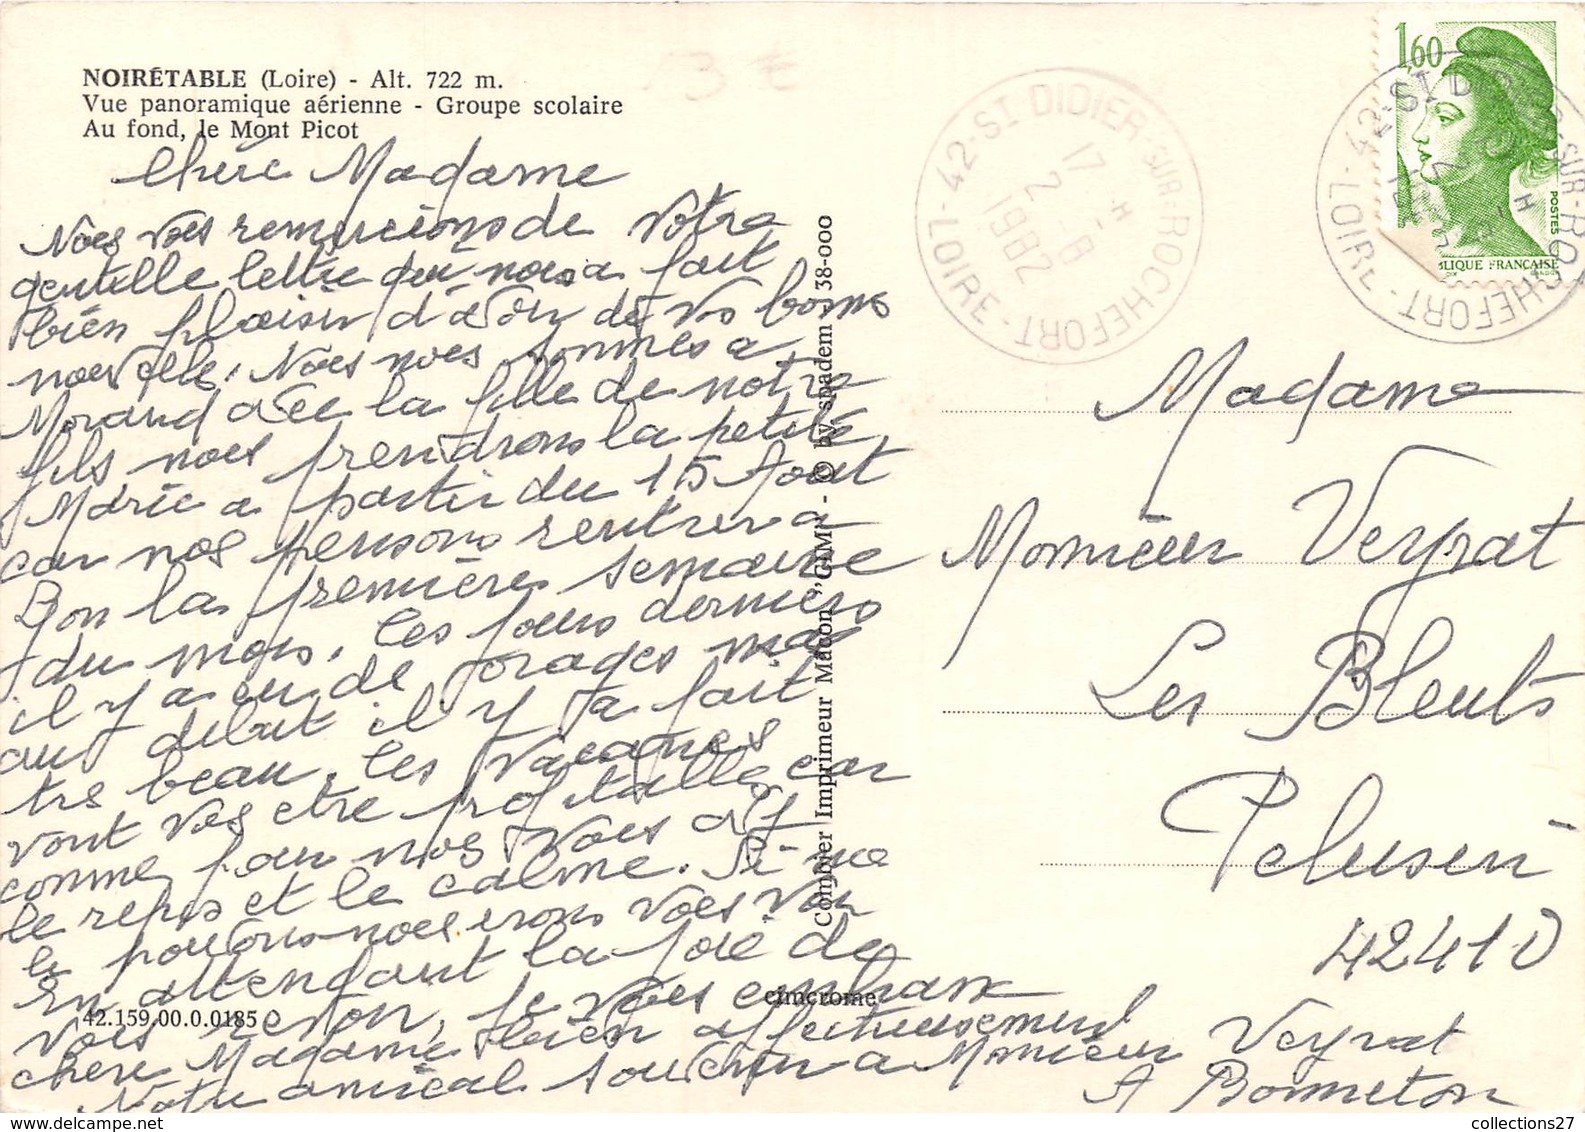 NOIRÉTABLE (Loire) - Alt. 722 m.
Vue panoramique aérienne - Groupe scolaire
Au fond, le Mont Picot
Chère Madame
Nous vous remercions de votre
gentille lettre qui nous a fait
bien plaisir d'avoir de vos bonnes
nouvelle. Nous nous sommes a
Morand avec la fille de notre
fils nous prendrons la petite
Marie a partir du 15 Aout
car nous pensons rentrer a
Bon la premières semaine
du mois. Les jours derniers
il y a eu de orages mai
au debut il y a fait
tre beau. Les vacances
vont vous etre profitable car
comme pour nous vous
le repos et le calme. Si-nce
le pouvons nous irons vous voir
En attendant la joie de
vous revoir, je vous embrasse
chere Madame bien affectueusement
Notre amical souvenir a Monsieur Veyrat
A Bonneton
42.159.00.0.0185
cimcrome
Combier Imprimeur Macon "CIM" - © by spadem - 38-000
42-ST DIDIER-SUR-ROCHEFORT - LOIRE
17 H
2 -8
1982
1,60
POSTES
BLIQUE FRANCAISE
42-ST DIDIER-SUR-ROCHEFORT - LOIRE
Madame
Monsieur Veyrat
Les Bleuts
Pelussin
42410
collections27